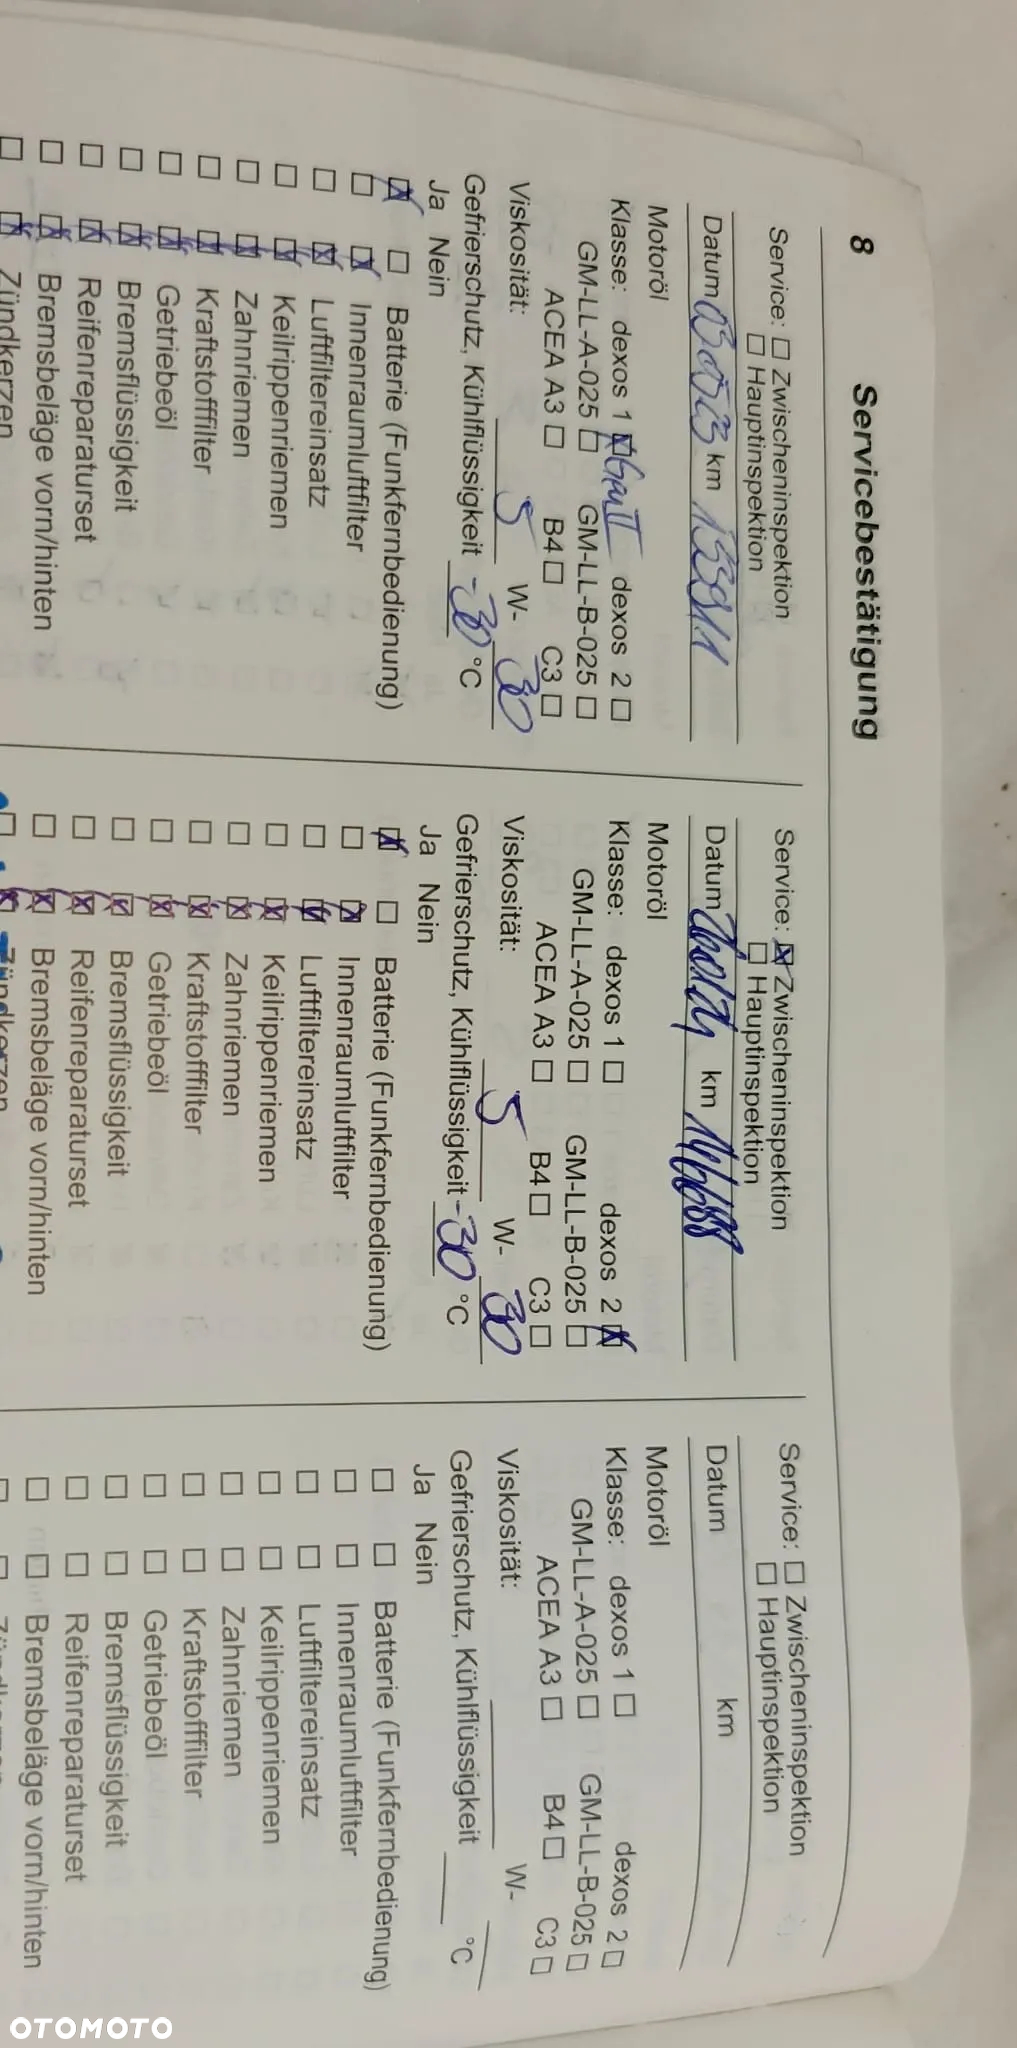 8 Servicebestätigung
Service: ☐ Zwischeninspektion
☐ Hauptinspektion
Datum km
Motoröl
Klasse: dexos 1 ☒ dexos 2 ☐
GM-LL-A-025 ☐ GM-LL-B-025 ☐
ACEA A3 ☐ B4 ☐ C3 ☐
Viskosität: 5 W- 30
Gefrierschutz, Kühlflüssigkeit -30 °C
Ja Nein
☒ ☐ Batterie (Funkfernbedienung)
☐ ☒ Innenraumluftfilter
☐ ☒ Luftfiltereinsatz
☐ ☒ Keilrippenriemen
☐ ☒ Zahnriemen
☐ ☒ Kraftstofffilter
☐ ☒ Getriebeöl
☐ ☒ Bremsflüssigkeit
☐ ☒ Reifenreparaturset
☐ ☒ Bremsbeläge vorn/hinten
☐ ☒ Zündkerzen
Service: ☒ Zwischeninspektion
☐ Hauptinspektion
Datum km
Motoröl
Klasse: dexos 1 ☐ dexos 2 ☒
GM-LL-A-025 ☐ GM-LL-B-025 ☐
ACEA A3 ☐ B4 ☐ C3 ☐
Viskosität: 5 W- 30
Gefrierschutz, Kühlflüssigkeit -30 °C
Ja Nein
☒ ☐ Batterie (Funkfernbedienung)
☐ ☒ Innenraumluftfilter
☐ ☒ Luftfiltereinsatz
☐ ☒ Keilrippenriemen
☐ ☒ Zahnriemen
☐ ☒ Kraftstofffilter
☐ ☒ Getriebeöl
☐ ☒ Bremsflüssigkeit
☐ ☒ Reifenreparaturset
☐ ☒ Bremsbeläge vorn/hinten
☐ ☒ Zündkerzen
Service: ☐ Zwischeninspektion
☐ Hauptinspektion
Datum km
Motoröl
Klasse: dexos 1 ☐ dexos 2 ☐
GM-LL-A-025 ☐ GM-LL-B-025 ☐
ACEA A3 ☐ B4 ☐ C3 ☐
Viskosität: W-
Gefrierschutz, Kühlflüssigkeit °C
Ja Nein
☐ ☐ Batterie (Funkfernbedienung)
☐ ☐ Innenraumluftfilter
☐ ☐ Luftfiltereinsatz
☐ ☐ Keilrippenriemen
☐ ☐ Zahnriemen
☐ ☐ Kraftstofffilter
☐ ☐ Getriebeöl
☐ ☐ Bremsflüssigkeit
☐ ☐ Reifenreparaturset
☐ ☐ Bremsbeläge vorn/hinten
OTOMOTO